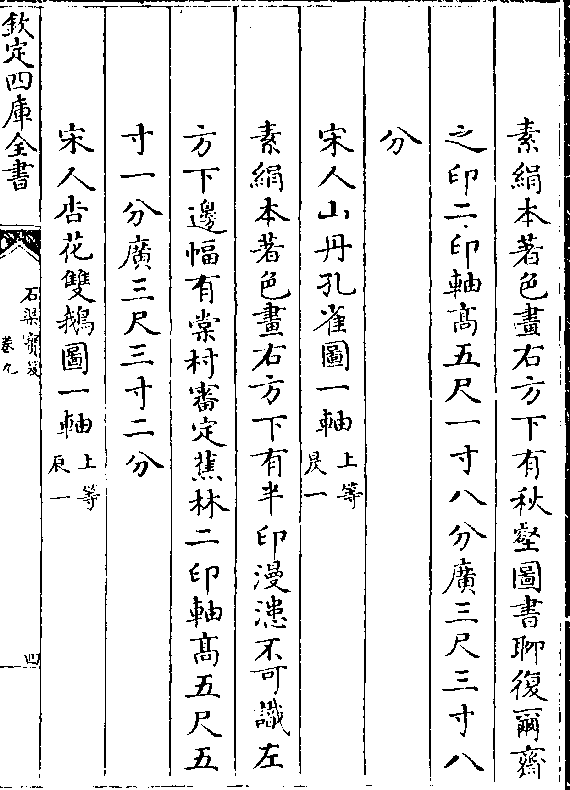 素絹本著色畫右方下有秋壑圖書聊復爾齋
之印二印軸髙五尺一寸八分廣三尺三寸八
分
宋人山丹孔雀圖一軸 上等
昃一
素絹本著色畫右方下有半印漫漶不可識左
方下邊幅有棠村審定蕉林二印軸髙五尺五
寸一分廣三尺三寸二分
宋人杏花雙鵝圖一軸 上等
辰一
欽定四庫全書
石渠寶笈
卷九
四